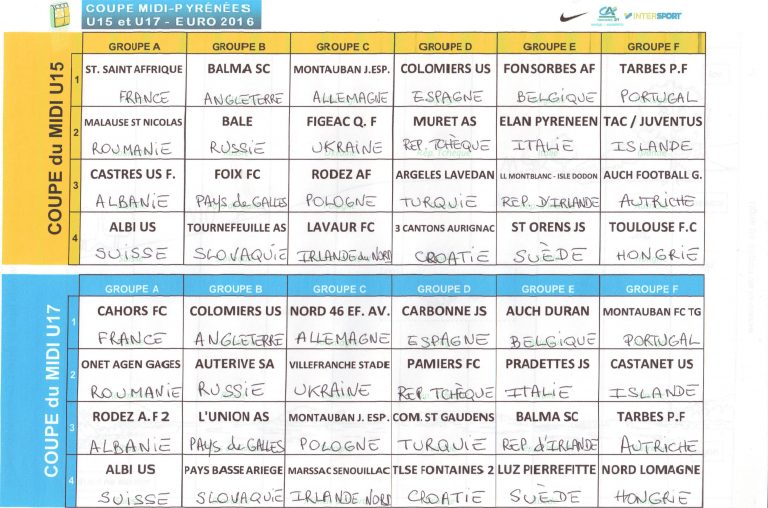 COUPE MIDI-PYRÉNÉES
U15 et U17 - EURO 2016
CA
INTERSPORT
COUPE du MIDI U15
GROUPE A GROUPE B GROUPE C GROUPE D GROUPE E GROUPE F
1 ST. SAINT AFFRIQUE BALMA SC MONTAUBAN J.ESP. COLOMIERS US FONSORBES AF TARBES P.F
FRANCE ANGLETERRE ALLEMAGNE ESPAGNE BELGIQUE PORTUGAL
2 MALAUSE ST NICOLAS BALE FIGEAC Q. F MURET AS ELAN PYRENEEN TAC / JUVENTUS
ROUMANIE RUSSIE UKRAINE REP. TCHÈQUE ITALIE ISLANDE
3 CASTRES US F. FOIX FC RODEZ AF ARGELES LAVEDAN LL MONTBLANC - ISLE DODON AUCH FOOTBALL G.
ALBANIE PAYS de GALLES POLOGNE TURQUIE REP. D'IRLANDE AUTRICHE
4 ALBI US TOURNEFEUILLE AS LAVAUR FC 3 CANTONS AURIGNAC ST ORENS JS TOULOUSE F.C
SUISSE SLOVAQUIE IRLANDE du NORD CROATIE SUÈDE HONGRIE
COUPE du MIDI U17
GROUPE A GROUPE B GROUPE C GROUPE D GROUPE E GROUPE F
1 CAHORS FC COLOMIERS US NORD 46 EF. AV. CARBONNE JS AUCH DURAN MONTAUBAN FC TG
FRANCE ANGLETERRE ALLEMAGNE ESPAGNE BELGIQUE PORTUGAL
2 ONET AGEN GAGES AUTERIVE SA VILLEFRANCHE STADE PAMIERS FC PRADETTES JS CASTANET US
ROUMANIE RUSSIE UKRAINE REP. TCHÈQUE ITALIE ISLANDE
3 RODEZ A.F 2 L'UNION AS MONTAUBAN J. ESP. COM. ST GAUDENS BALMA SC TARBES P.F
ALBANIE PAYS de GALLES POLOGNE TURQUIE REP. d'IRLANDE AUTRICHE
4 ALBI US PAYS BASSE ARIEGE MARSSAC SENOUILLAC TLSE FONTAINES 2 LUZ PIERREFITTE NORD LOMAGNE
SUISSE SLOVAQUIE IRLANDE NORD CROATIE SUÈDE HONGRIE